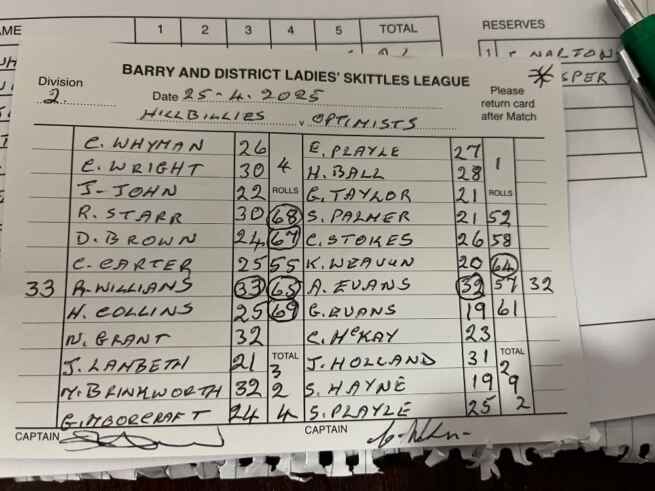 1 2 3 4 5 TOTAL
RESERVES
NARTON
SPER
BARRY AND DISTRICT LADIES' SKITTLES LEAGUE
Division
2.
Date 25-4.2025
Please
return card
after Match
HILLBILLIES v OPTIMISTS
C. WHYMAN 26 E. PLAYLE 27
C. WRIGHT 30 4 H. BALL 28 1
J. JOHN 22 ROLLS G. TAYLOR 21 ROLLS
R. STARR 30 68 S. PALMER 21 52
D. BROWN 24 67 C. STOKES 26 58
C. CARTER 25 55 K. WEAVUN 20 64
33 R. WILLIANS 33 65 A. EVANS 32 57 32
H. COLLINS 25 69 G. EVANS 19 61
N. GRANT 32 C. McKAY 23
J. LANBETH 21 TOTAL J. HOLLAND 31 TOTAL
3 2
M. BRINKWORTH 32 2 S. HAYNE 19 9
G. MBORCRAFT 24 4 S. PLAYLE 25 2
CAPTAIN CAPTAIN